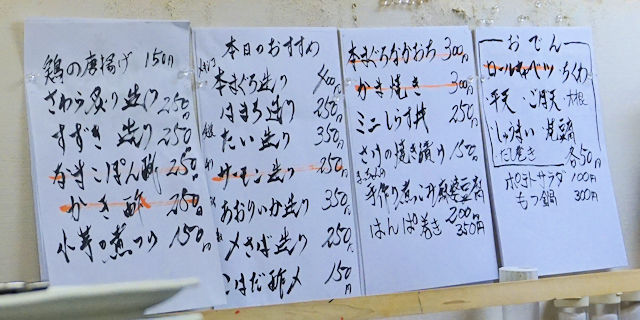 鶏の唐揚げ 150円
さわら炙り造り 250円
すずき造り 250円
なまこぽん酢 250円
かき酢 250円
小芋の煮つけ 150円
本日のおすすめ
本まぐろ造り 400円
はまち造り 250円
たい造り 350円
サーモン造り 250円
あおりいか造り 350円
〆さば造り 250円
こはだ酢〆 150円
本まぐろなかおち 300円
かき焼き 300円
ミニしらす丼 250円
さけの焼き漬け 150円
手作り煮こみ麻婆豆腐 200円
はんぱ巻き 350円
おでん
ロールキャベツ・ちくわ
・平天・ごぼ天・大根
・しゅうまい・焼豆腐
・だし巻き 各50円
ポテトサラダ 100円
もつ鍋 300円